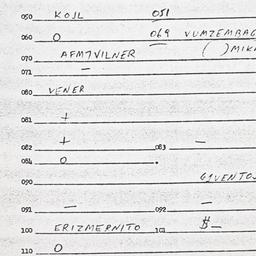 050 KOJL 051
060 O 069 VUMZEMBAG
070 AFM7VILNER ( )MIKA
071 —
080 VENER
081 +
082 + 083 —
084 O
090 G1VENTOJ
091 — 092 —
100 ERIZMERNITO 101 $—
110 O